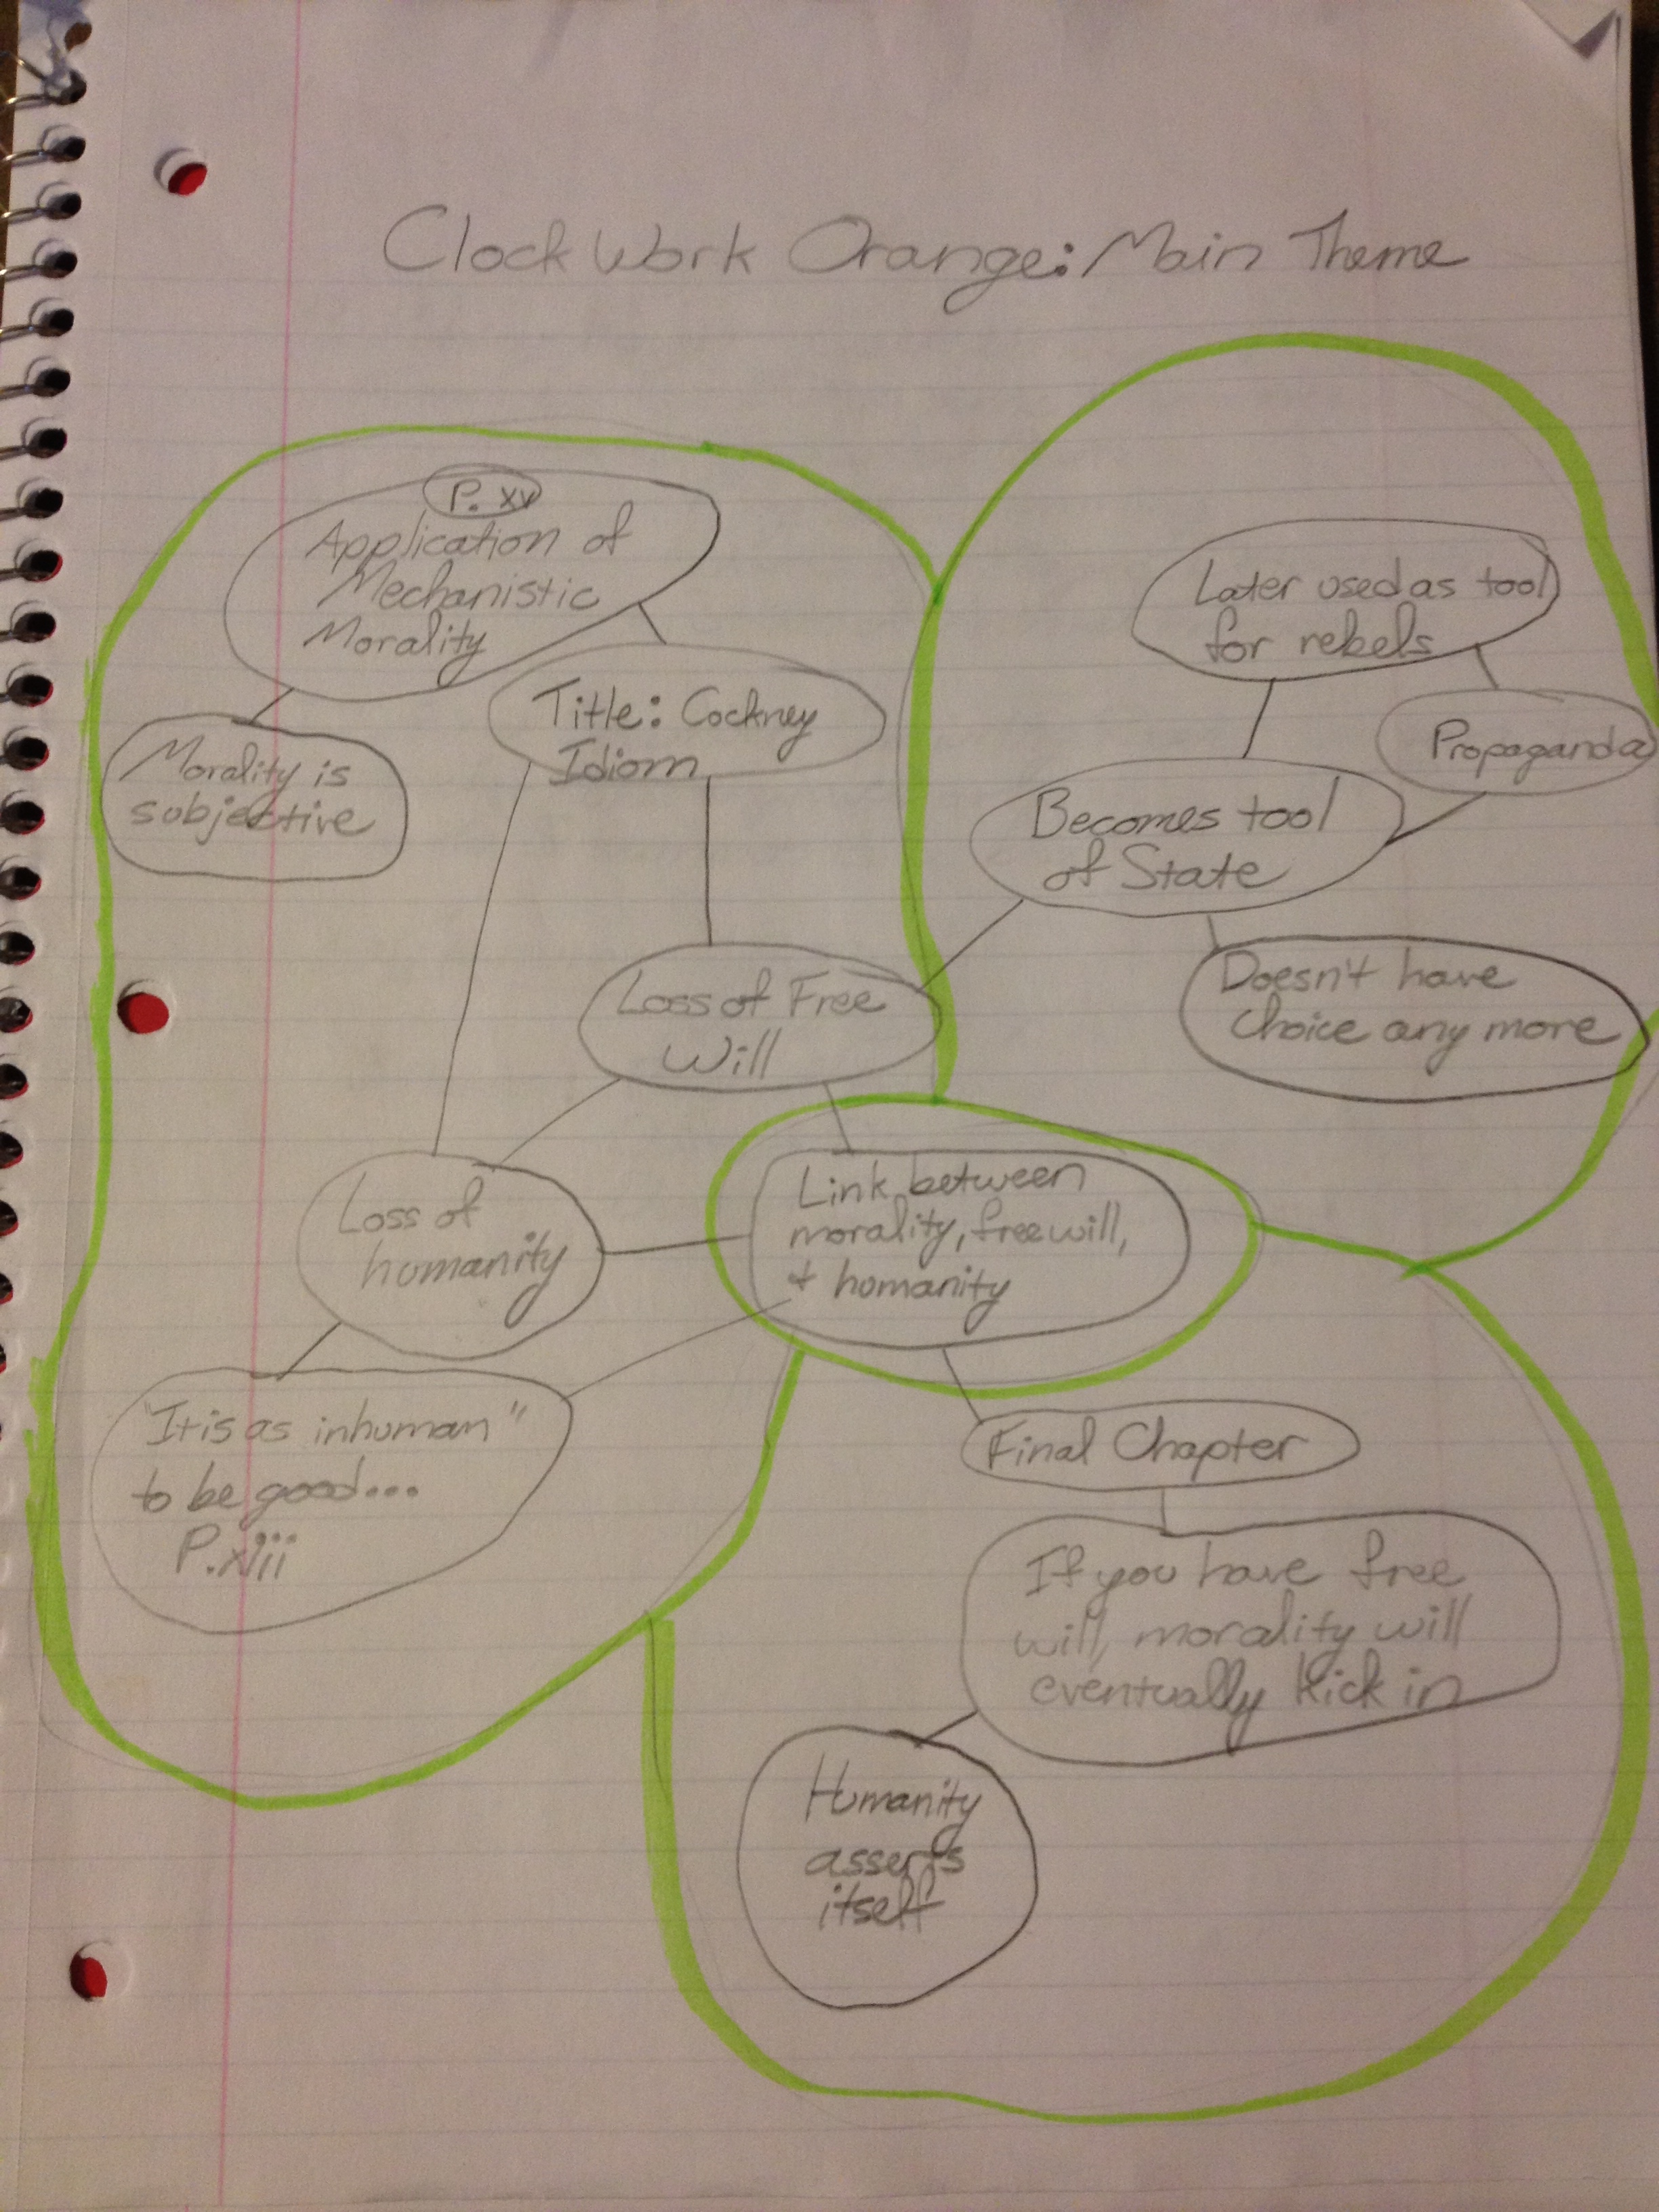 Clock Work Orange: Main Theme
P. xv
Application of
Mechanistic
Morality
Title: Cockney
Idiom
Morality is
subjective
Loss of Free
Will
Loss of
humanity
"It is as inhuman"
to be good...
P. xiii
Later used as tool
for rebels
Propaganda
Becomes tool
of State
Doesn't have
choice any more
Link between
morality, free will,
+ humanity
Final Chapter
If you have free
will, morality will
eventually kick in
Humanity
asserts
itself